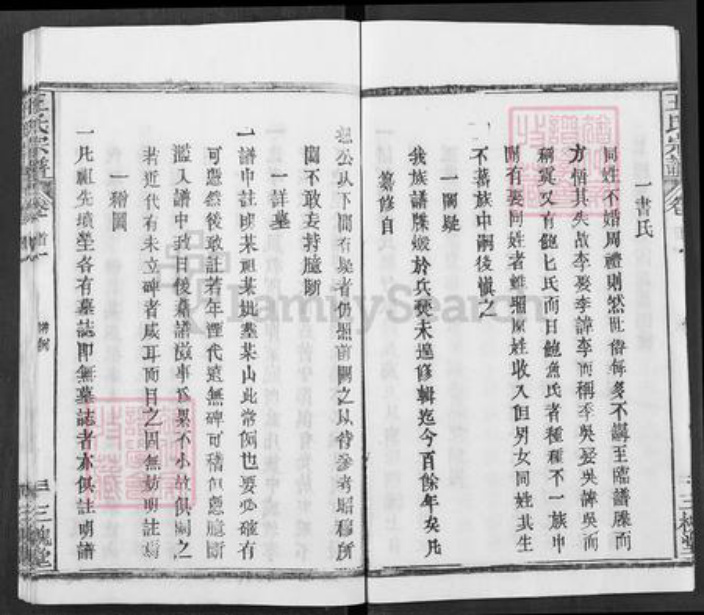 王氏宗譜
一書氏
同姓不婚周禮則然世俗每多不講至臨譜牒而
方悟其失故李娶李諱李而稱季吳娶吳諱吳而
稱寞又有鮑匕氏而曰鮑魚氏者種種不一族中
間有娶同姓者雖照原姓收入但男女同姓其生
不蕃族中嗣後愼之
一闕疑
我族譜牒燬於兵燹未遑修輯迄今百餘年矣凡
纂修自
公以下間有疑者仍照前闕之以待參考昭穆所
關不敢妄持臆斷
一詳墓
一譜中註明某祖某妣塟某山此常例也要必確有
可憑然後敢註若年湮代遠無碑可稽但憑臆斷
濫入譜中致日後藉譜滋事爲累不小故俱闕之
若近代有未立碑者咸耳而目之固無妨明註焉
一繪圖
一凡祖先墳塋各有墓誌即無墓誌者亦俱註明譜
王氏宗譜
卷首
三槐堂
三槐堂
FamilySearch